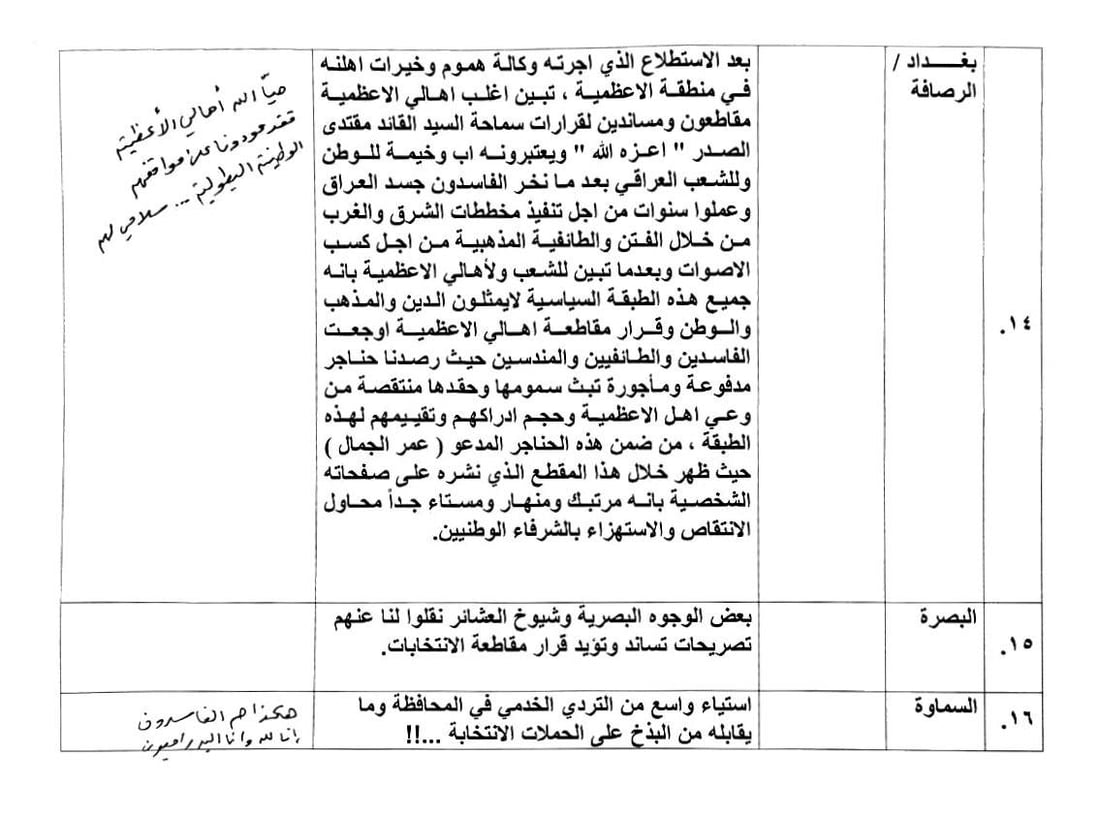 ١٤.
بغـــداد /
الرصافة
بعد الاستطلاع الذي اجرته وكالة هموم وخيرات اهلنه
في منطقة الاعظمية ، تبين اغلب اهالي الاعظمية
مقاطعون ومساندين لقرارات سماحة السيد القائد مقتدى
الصدر " اعزه الله " ويعتبرونه اب وخيمة للوطن
وللشعب العراقي بعد ما نخر الفاسدون جسد العراق
وعملوا سنوات من اجل تنفيذ مخططات الشرق والغرب
من خلال الفتن والطائفية المذهبية من اجل كسب
الاصوات وبعدما تبين للشعب ولأهالي الاعظمية بانه
جميع هذه الطبقة السياسية لايمثلون الدين والمذهب
والوطن وقرار مقاطعة اهالي الاعظمية اوجعت
الفاسدين والطائفيين والمندسين حيث رصدنا حناجر
مدفوعة ومأجورة تبث سمومها وحقدها منتقصة من
وعي اهل الاعظمية وحجم ادراكهم وتقييمهم لهذه
الطبقة ، من ضمن هذه الحناجر المدعو ( عمر الجمال )
حيث ظهر خلال هذا المقطع الذي نشره على صفحاته
الشخصية بانه مرتبك ومنهار ومستاء جداً محاول
الانتقاص والاستهزاء بالشرفاء الوطنيين.
حيّا الله أهالي الأعظمية
فقد عودونا على مواقفهم
الوطنية البطولية ... سلامي لهم
١٥.
البصرة
بعض الوجوه البصرية وشيوخ العشائر نقلوا لنا عنهم
تصريحات تساند وتؤيد قرار مقاطعة الانتخابات.
١٦.
السماوة
استياء واسع من التردي الخدمي في المحافظة وما
يقابله من البذخ على الحملات الانتخابة ...!!
هكذا هم الفاسدون
إنا لله وانا اليه راجعون